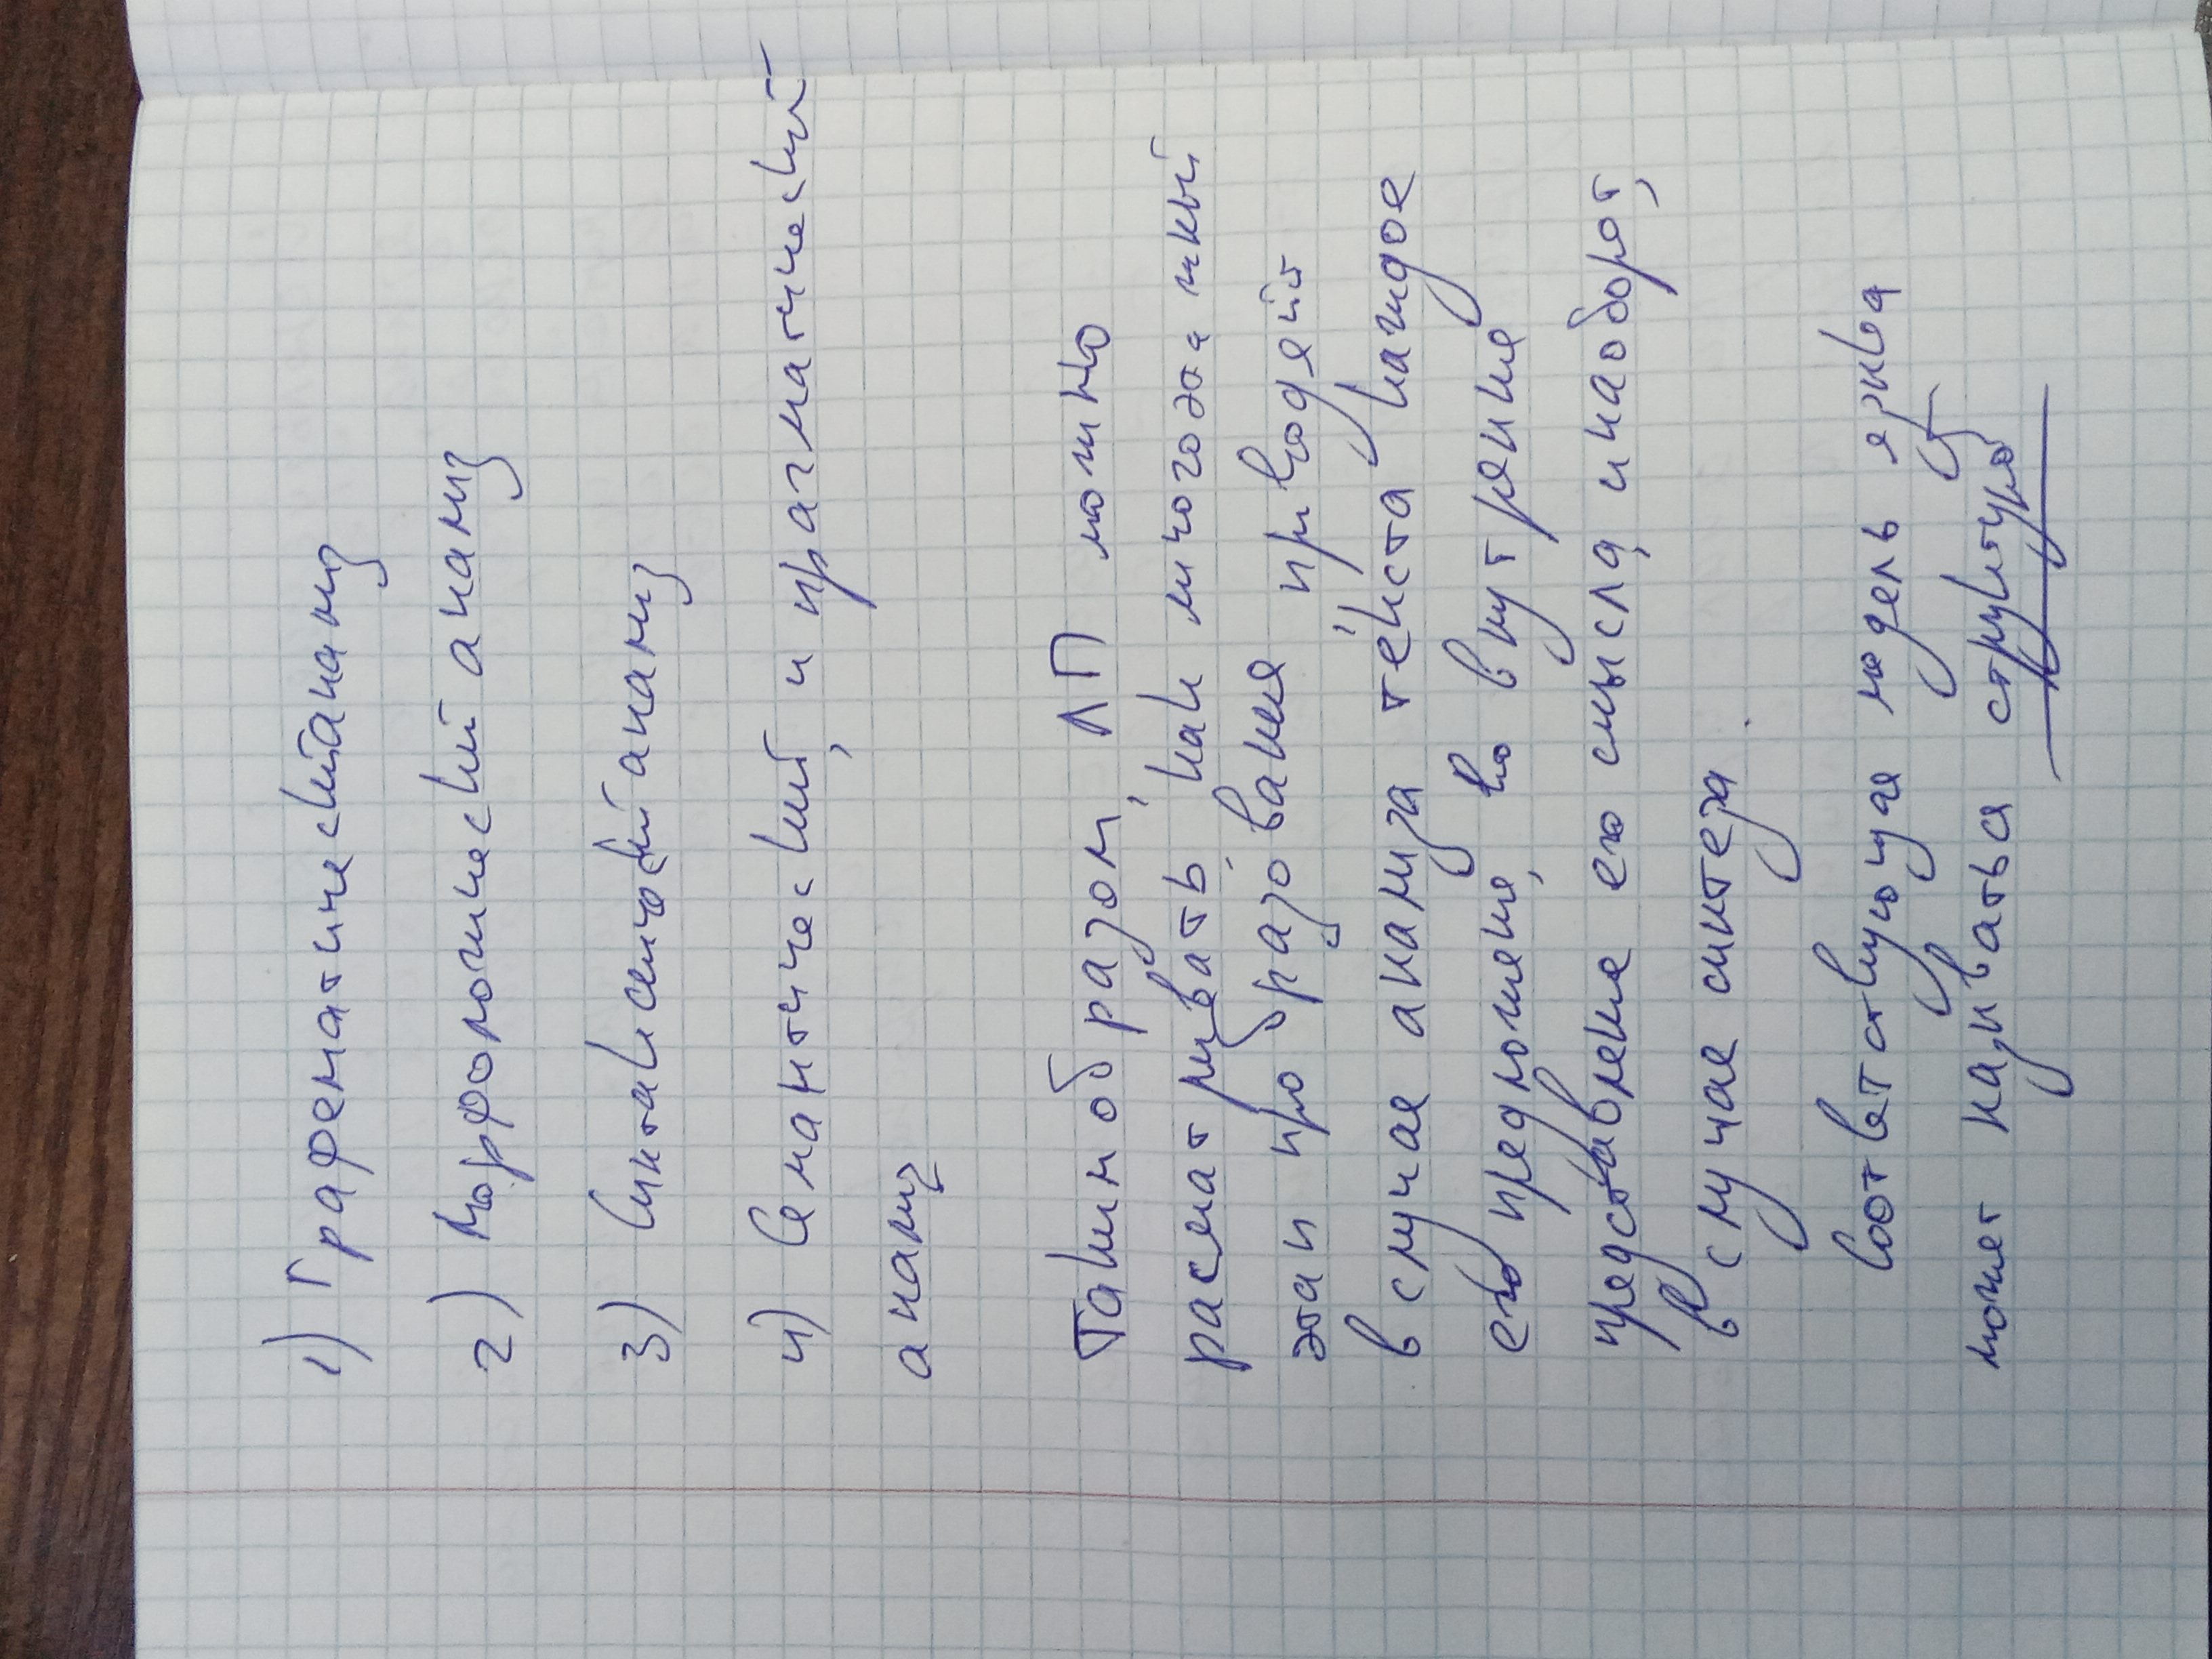 1) Графематический анализ
2) Морфологический анализ
3) Синтаксический анализ
4) Семантический, и прагматический
анализ
Таким образом, ЛП можно
расматривать, как многоэтажный
этап пробразования, приводейт
в случае анализа текста каждое
его предложение, во внутренние
представление его смысла, и наоборот,
в случае синтеза.
Соответствующая модель языка
может называться структурой